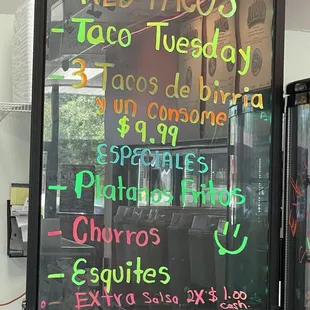 TACOS
- Taco Tuesday
- 3 Tacos de birria
y un consome
$9.99
ESPECIALES
- Platanos Fritos
- Churros
- Esquites
- EXtra Salsa 2X$1.00
cash